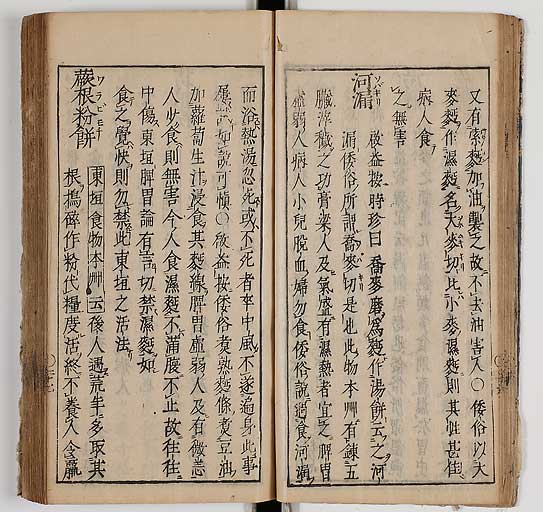 又有索麪加油製之故不去油害人〇倭俗以大
麥麪作濕麪名大麥切比小麥濕麪則其性甚佳
病人食
之無害
河漏 ソハキリ
啟益按時珍曰喬麥磨爲麪作湯餅云之河
漏倭俗所謂喬麥切是也此物本艸有鍊五
臟滓穢之功膏粱人及氣盛有濕熱者宜之脾胃
虛弱人病人小兒脫血婦勿食倭俗說過食河漏
而浴熱湯忽死或不死者卒中風不遂遍身此事
屢試如說可愼〇啟益按倭俗煮熟麪條煑豆油
加蘿蔔生汁浸食其麪線脾胃虛弱人及有微恙
人少食則無害今人食濕麪不滿腹不止故往往
中傷東垣脾胃論有言切禁濕麪如
食之覺快則勿禁此東垣之活法
蕨根粉餅 ワラビモチ
東垣食物本艸云後人過荒年多取其
根搗碎作粉代糧度活終不養人令羸